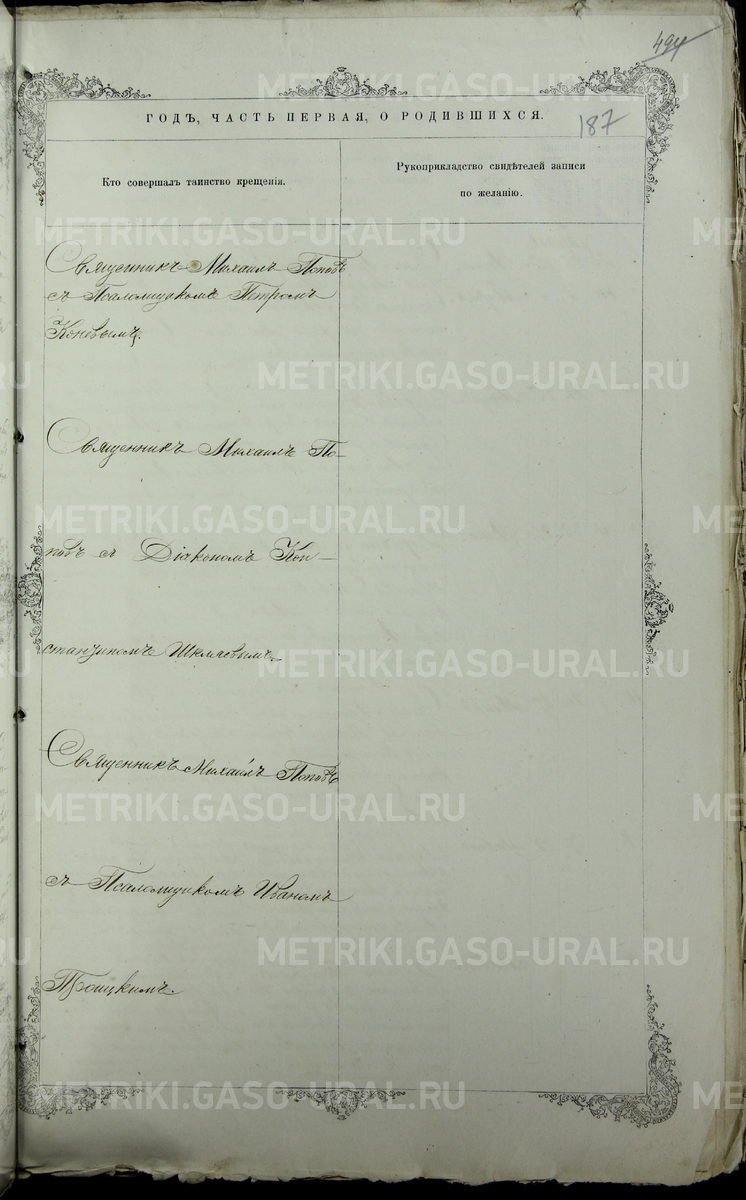 494
ГОДЪ, ЧАСТЬ ПЕРВАЯ, О РОДИВШИХСЯ.
187
Кто совершалъ таинство крещенія.
Рукоприкладство свидѣтелей записи
по желанію.
Священникъ Михаилъ Поповъ
съ Псаломщикомъ Петромъ
Коневымъ.
Священникъ Михаилъ По-
повъ съ Діакономъ Кон-
стантиномъ
Священникъ Михаилъ Поповъ
съ Псаломщикомъ Иваномъ
Троицкимъ.
METRIKI.GASO-URAL.RU